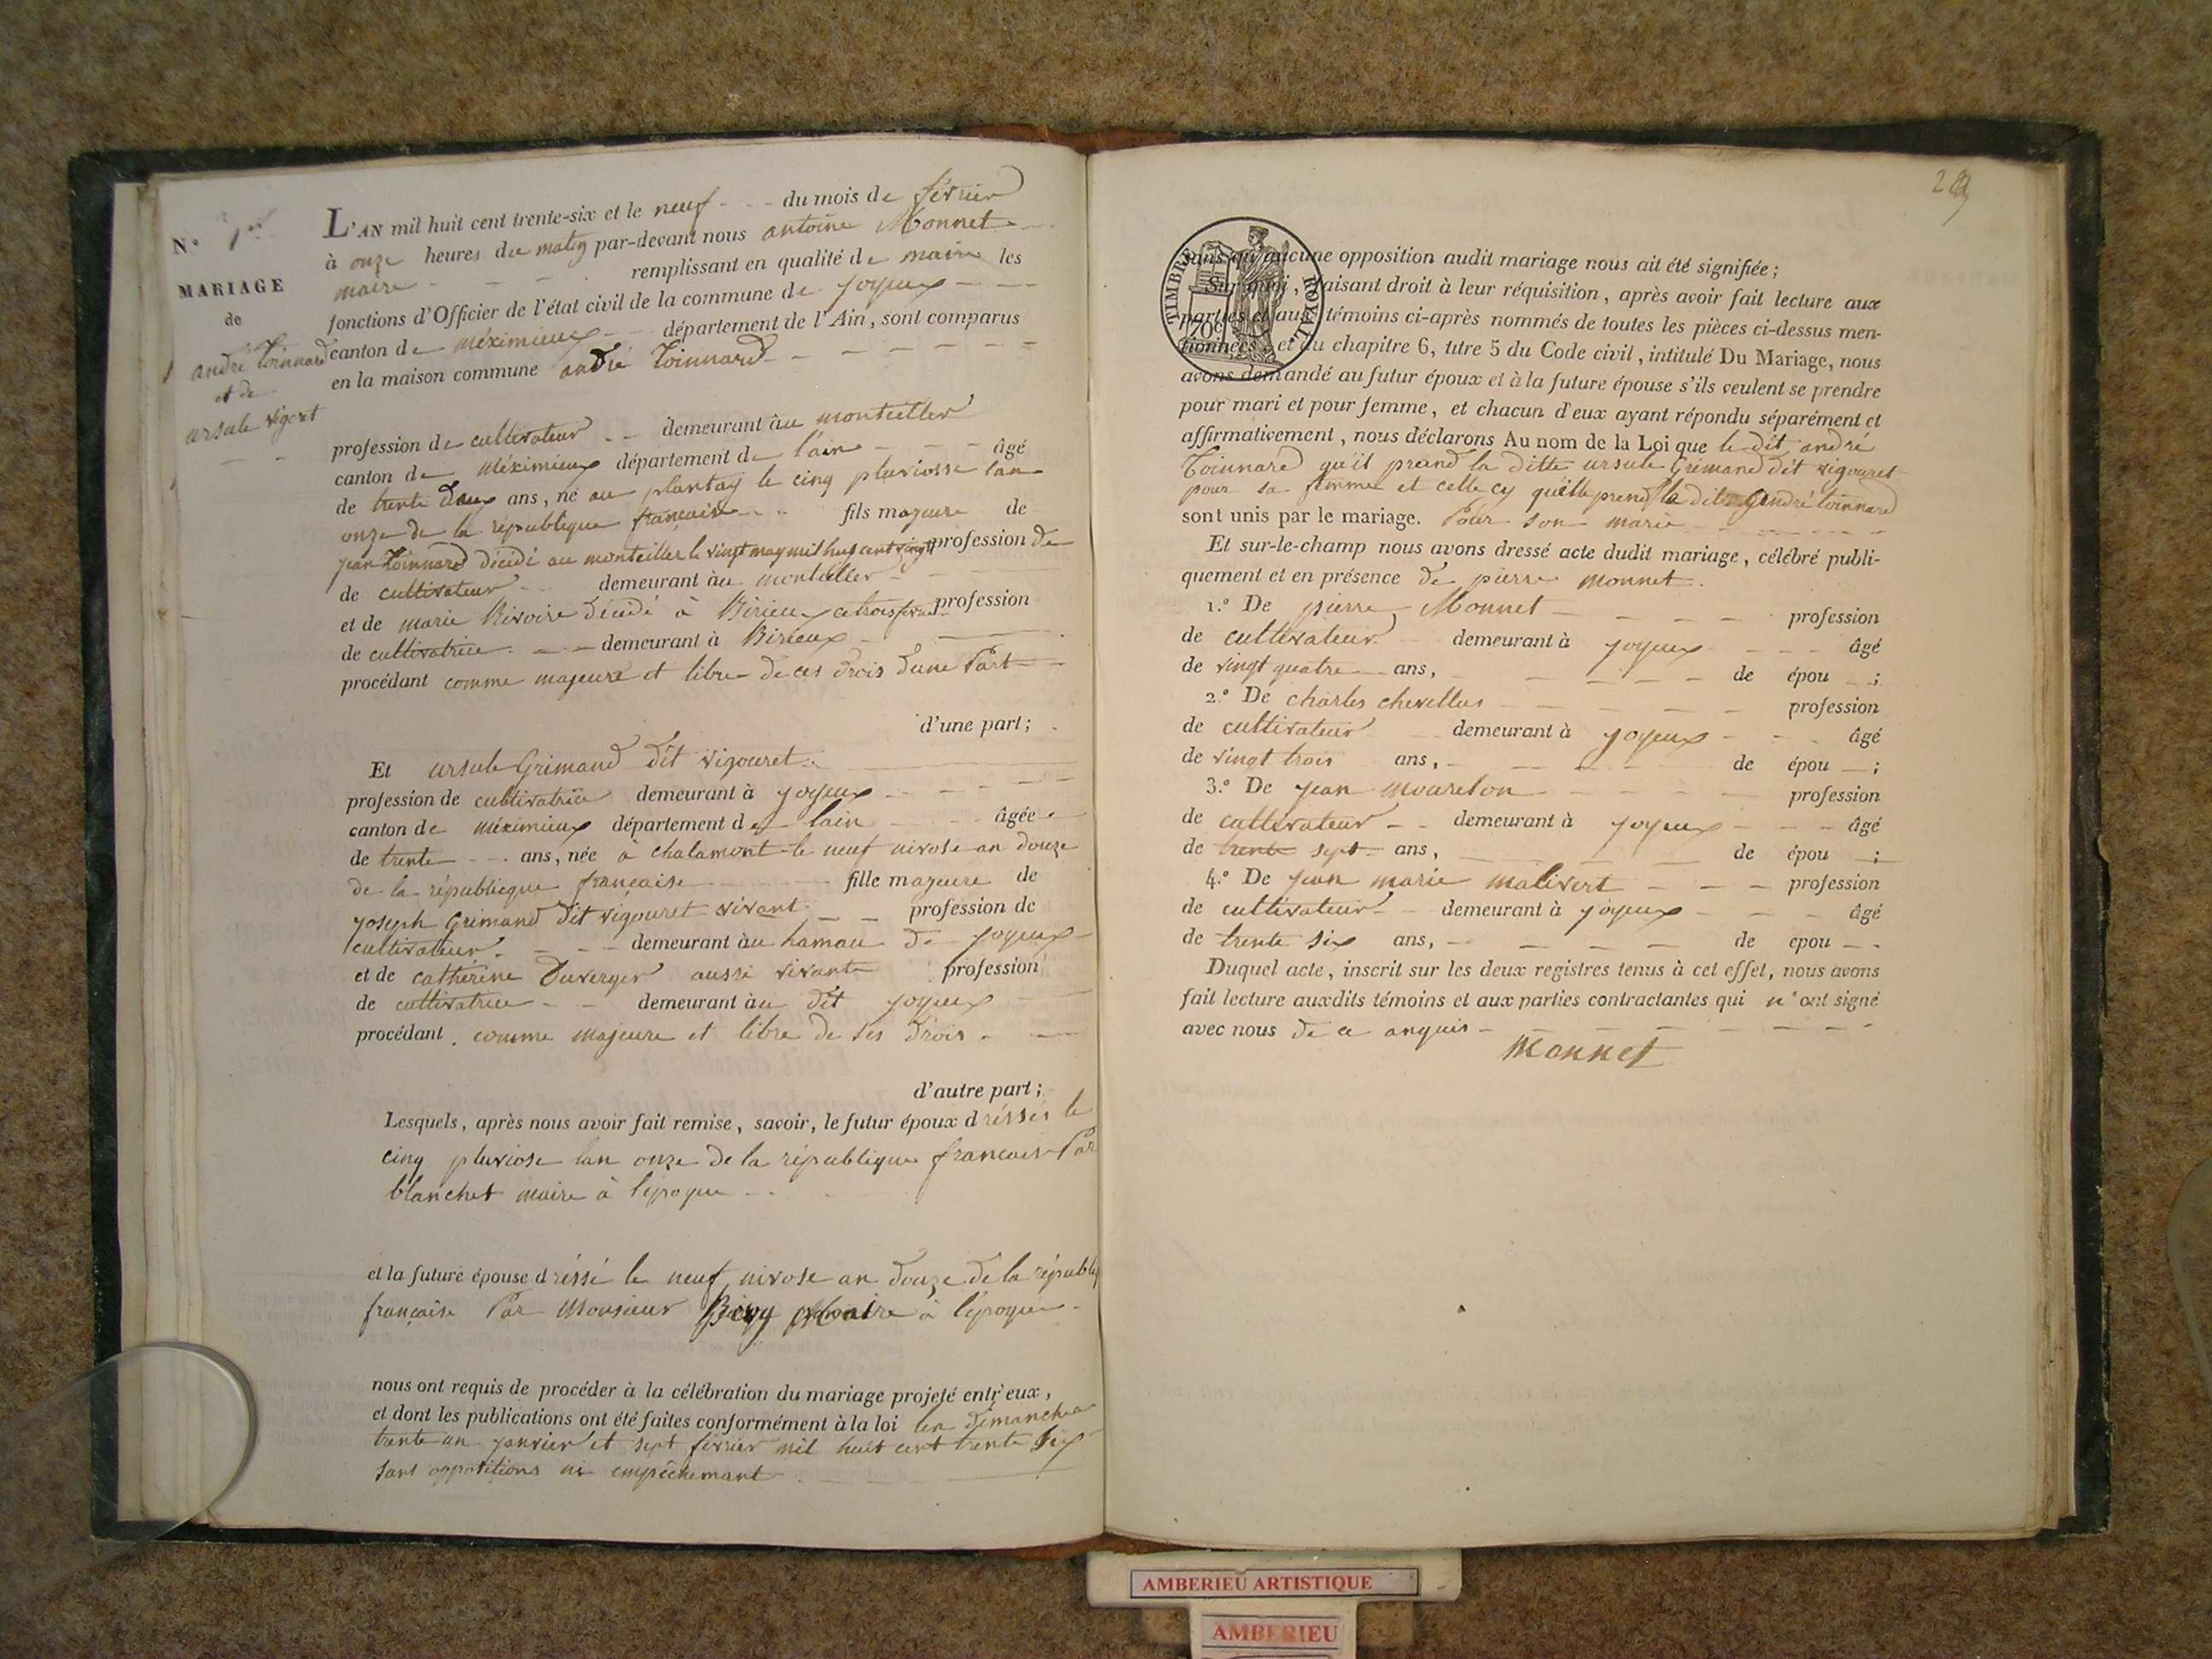 N.o 1er
MARIAGE
de
andré Toinnard
et de
ursule vigoret
L'AN mil huit cent trente-six et le neuf - - - du mois de février
à onze heures du matin par-devant nous antoine Monnet
maire - - - remplissant en qualité de maire les
fonctions d'Officier de l'état civil de la commune de joyeux - - -
canton de méximieux - - - département de l'Ain, sont comparus
en la maison commune andré Toinnard - - - - - - -
profession de cultivateur - - demeurant àu monteiller
canton de Méximieux département de l'ain - - - âgé
de trente deux ans, né au plantay le cinq pluviosse lan
onze de la république française - - fils majeure de
jean Toinnard décédé au monteiller le vingt may mil huit cent vingt profession de
de cultivateur - - demeurant àu monteiller - -
et de marie Rivoire décédé à Birieux profession
de cultivatrice - - - demeurant à Birieux -
procédant comme majeure et libre de ces drois d'une Part
d'une part;
Et ursule Grimand dit vigouret
profession de cultivatrice demeurant à joyeux - - - -
canton de méximieux département de lain - - âgée
de trente - - - ans, née à chalamont le neuf nivose an douze
de la république française - - - fille majeure de
joseph Grimand dit vigouret vivant - - profession de
cultivateur - - - demeurant àu hamau de joyeux
et de cathérine Duverger aussi vivante profession
de cultivatrice - - demeurant àu dit joyeux
procédant comme majeure et libre de ses drois - -
d'autre part;
Lesquels, après nous avoir fait remise, savoir, le futur époux dréssés le
cinq pluviose lan onze de la république francais Par
blanchet maire à l'époque - -
et la future épouse dréssé le neuf nivose an douze de la républiq
française Par Monsieur Maire à l'époque -
nous ont requis de procéder à la célébration du mariage projeté entr'eux,
et dont les publications ont été faites conformément à la loi les dimanches
trente un janvier et sept février mil huit cent trente six
sans oppositions ni empêchemant - - -
TIMBRE ROYAL
70c
sans qu'aucune opposition audit mariage nous ait été signifiée;
Sur quoi, faisant droit à leur réquisition, après avoir fait lecture aux
parties et aux témoins ci-après nommés de toutes les pièces ci-dessus men-
tionnées, et du chapitre 6, titre 5 du Code civil, intitulé Du Mariage, nous
avons demandé au futur époux et à la future épouse s'ils veulent se prendre
pour mari et pour femme, et chacun d'eux ayant répondu séparément et
affirmativement, nous déclarons Au nom de la Loi que le dit andré
Toinnard qu'il preand la ditte ursule Grimand dit vigouret
pour sa femme et celle cy qu'elle prend le dit andré toinnard
sont unis par le mariage. Pour son marie - - -
Et sur-le-champ nous avons dressé acte dudit mariage, célébré publi-
quement et en présence de pierre monnet.
1.o De pierre Monnet - - - - profession
de cultivateur demeurant à joyeux - - - âgé
de vingt quatre ans, - - - - de épou - ;
2.o De charles chevellus - - - - profession
de cultivateur demeurant à joyeux - - - âgé
de vingt trois ans, - - - - de épou - ;
3.o De jean mourelon - - - - profession
de cultivateur - - demeurant à joyeux - - - âgé
de trente sept ans, - - - de épou - ;
4.o De jean marie malivert - - - profession
de cultivateur - demeurant à joyeux - - - âgé
de trente six ans, - - - - de epou - -
Duquel acte, inscrit sur les deux registres tenus à cet effet, nous avons
fait lecture auxdits témoins et aux parties contractantes qui n'ont signé
avec nous de ce anquis - - - - - - - -
Monnet
AMBERIEU ARTISTIQUE
AMBERIEU